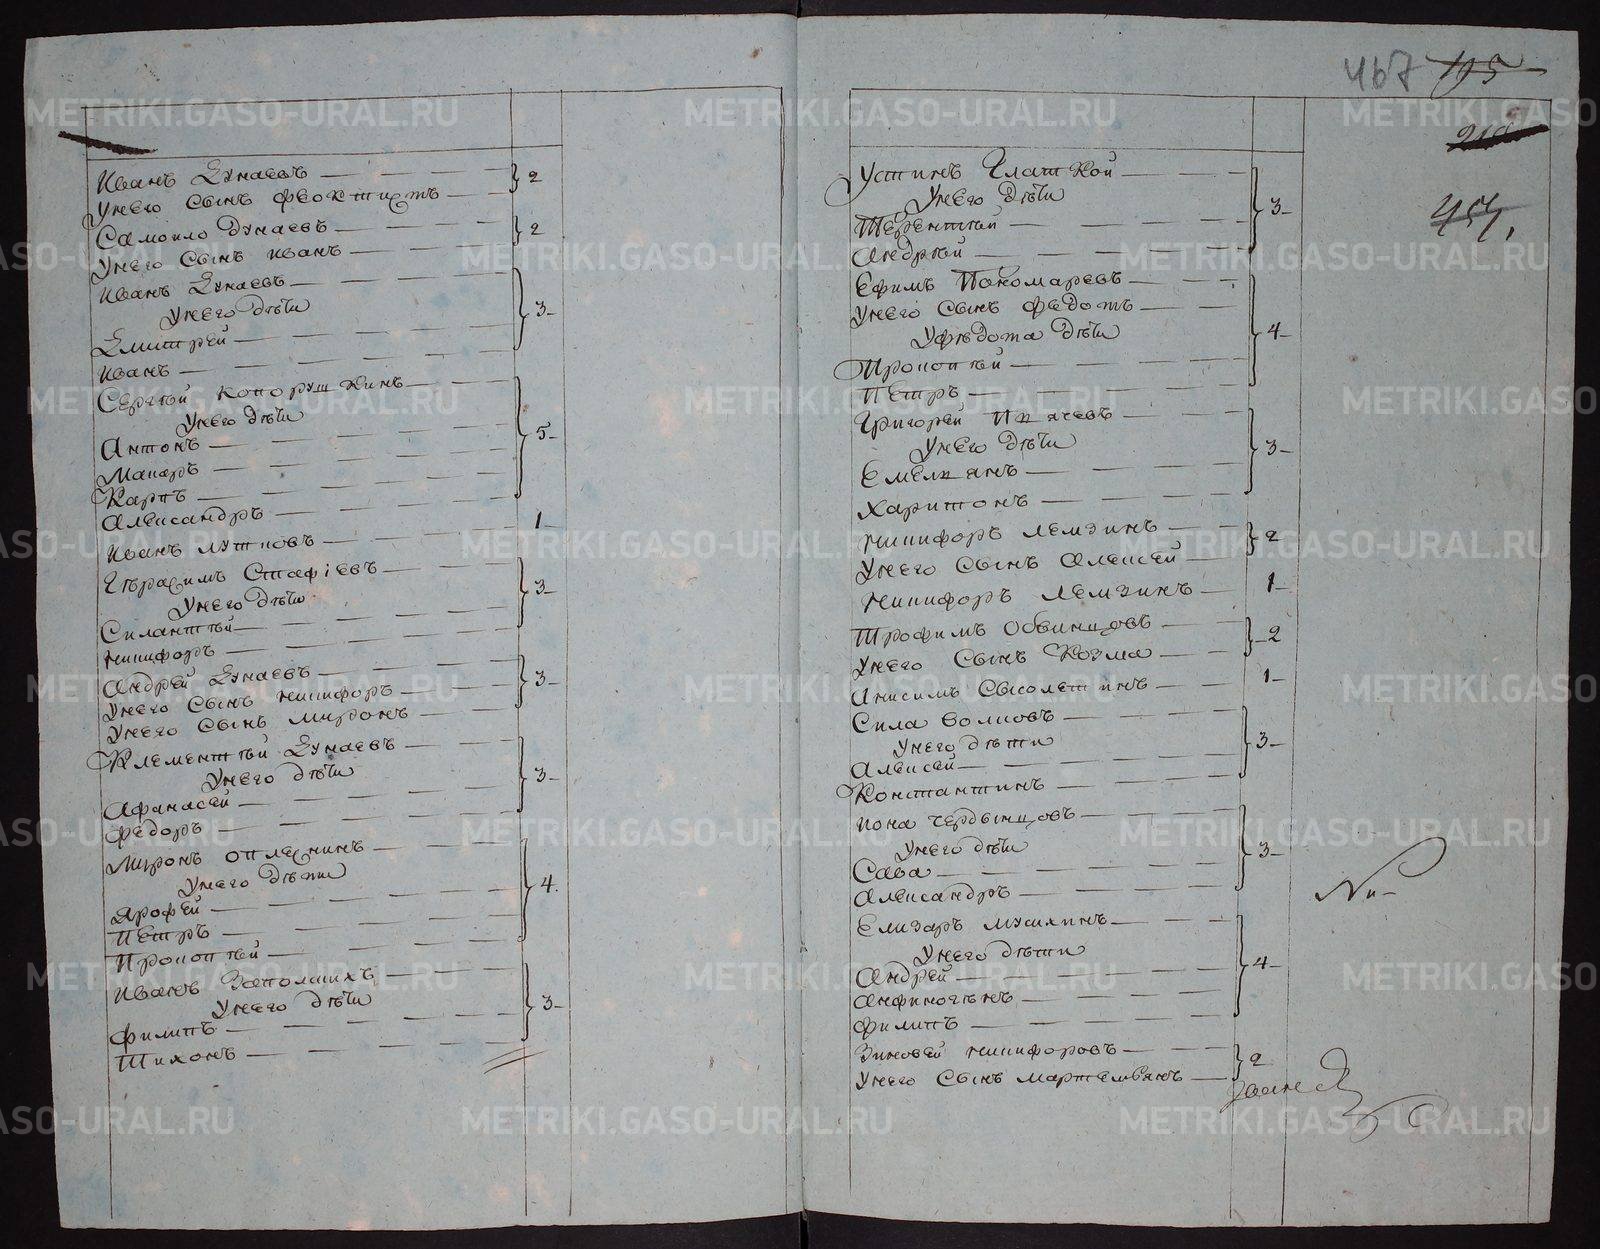 Иванъ Дунаевъ 2
Унего сынъ Феоктистъ
Самоило Дунаевъ 2
Унего сынъ Иванъ
Иванъ Дунаевъ 3
Унего дѣти
Дмитрей
Иванъ
Сергѣй
Унего дѣти 5
Антонъ
Макаръ
Карпъ
Александръ
Иванъ Лутковъ 1
Герасимъ Стафіевъ 3
Унего дѣти
Силантѣй
Никифоръ
Андрей Дунаевъ 3
Унего сынъ Никифоръ
Унего сынъ Миронъ
Клементѣй Дунаевъ 3
Унего дѣти
Афанасей
Федоръ
Миронъ
Унего дѣти 4
Ярофей
Петръ
Прокопѣй
Иванъ
Унего дѣти 3
Филипъ
Тихонъ
467 195
Устинъ Глаткой
Унего дѣти 3
Терентѣй
Андрѣй
Ефимъ Пономаревъ
Унего сынъ Федотъ
Уфедота дѣти 4
Прокопѣй
Петръ
Григорей
Унего дѣти 3
Емелянъ
Харитонъ
Никифоръ Лемзинъ 2
Унего сынъ Алексей
Никифоръ Лемзинъ 1
Трофимъ Обвинцовъ 2
Унего сынъ Козма
Анисимъ Сысолетинъ 1
Сила Волковъ
Унего дѣти 3
Алексей
Константинъ
Иона Чердынцовъ
Унего дѣти 3
Сава
Александръ
Елизаръ Мусихинъ
Унего дѣти
Андрей 4
Анфиногѣнъ
Филипъ
Зиновей Никифоровъ 2
Унего сынъ Мартемьянъ
METRIKI.GASO-URAL.RU